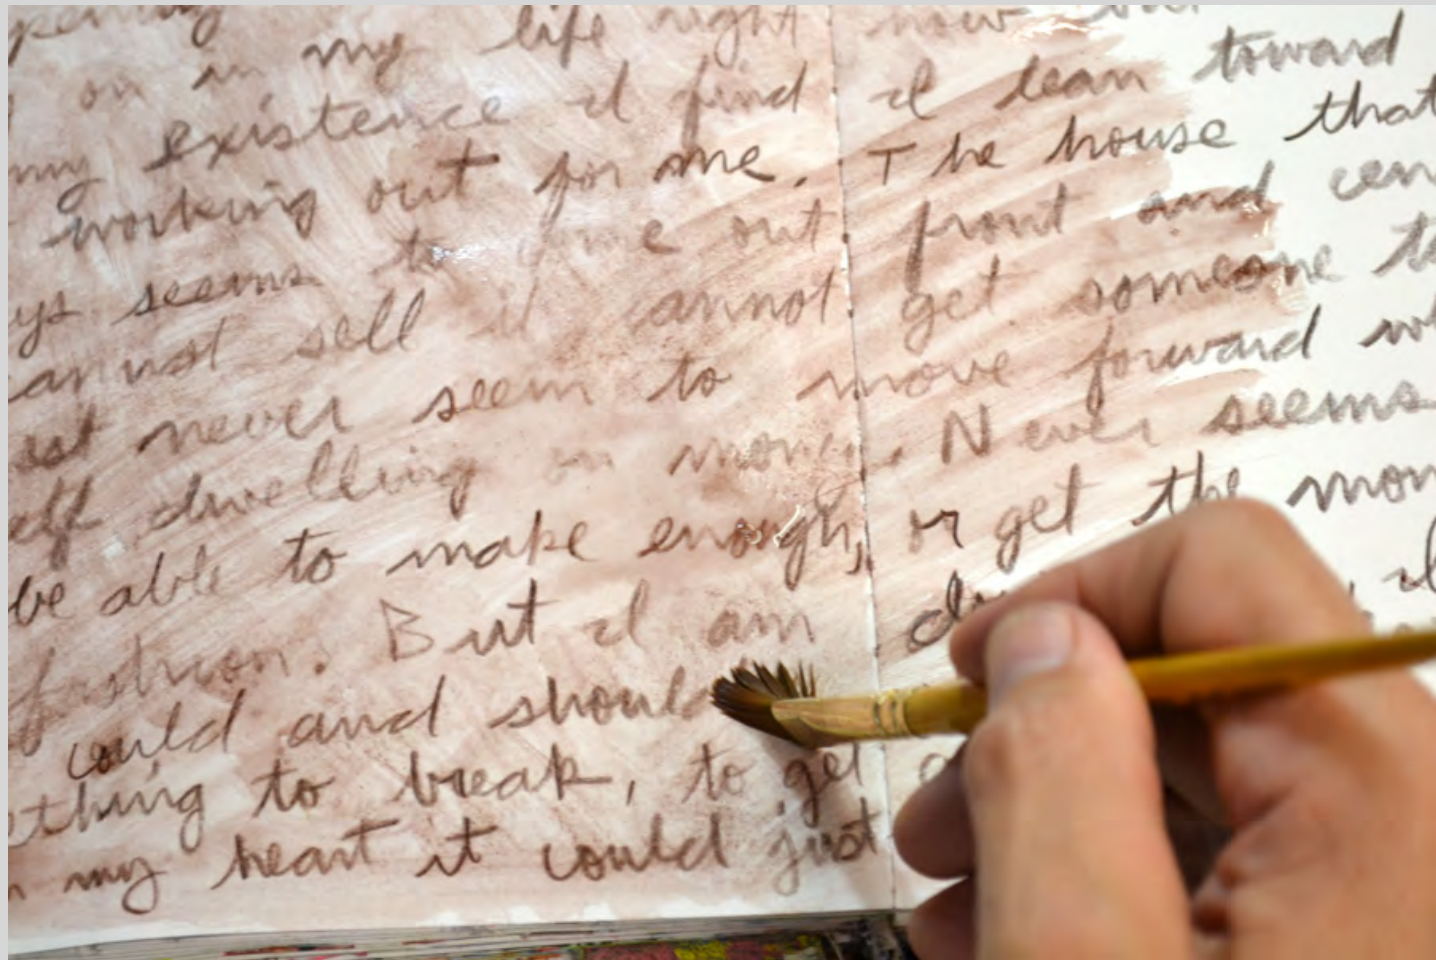 on in my life right now
my existence I find I lean toward
working out for me. The house that
seems to out front and cen
sell it annot get someone to
never seem to move forward
elf dwelling on money. Never seems
be able to make enough, or get the mon
fashion. But I am I
could and should
thing to break, to get
my heart it could just